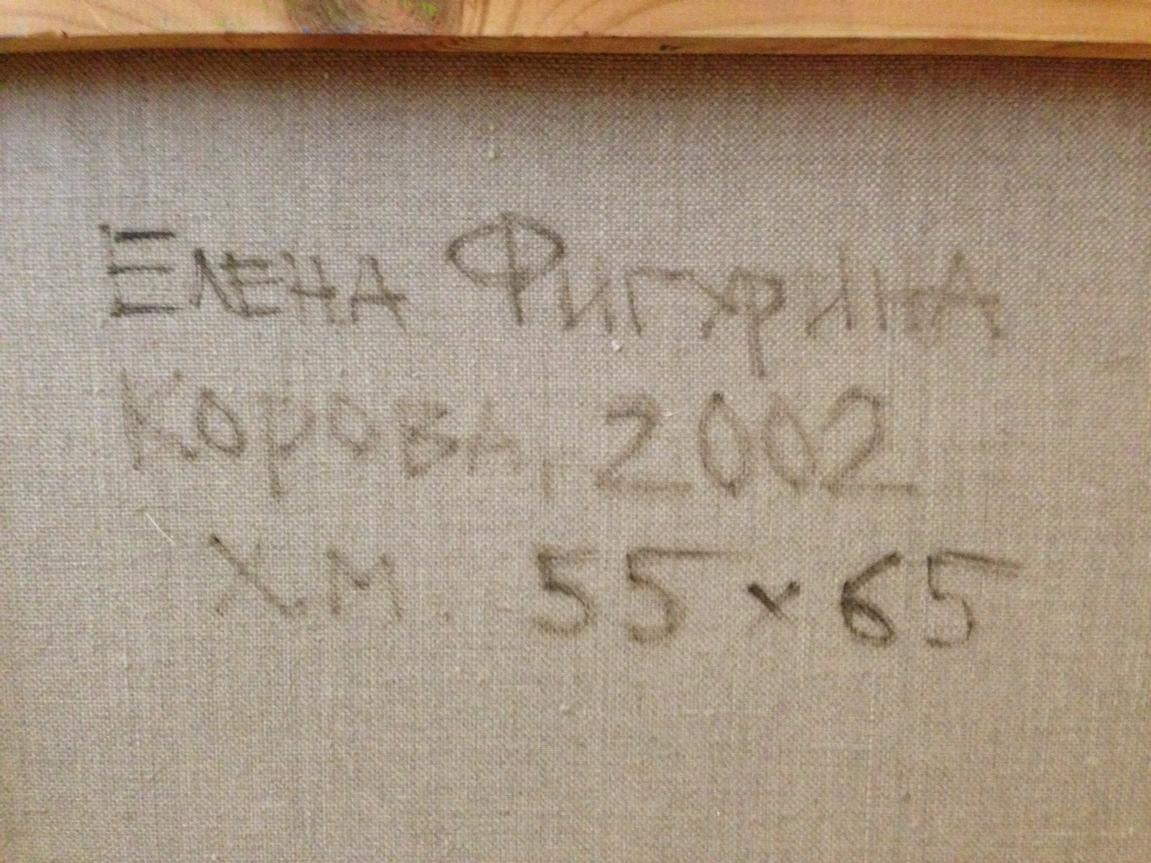 Елена Фигурина
Корова, 2002
Х.М. 55×65